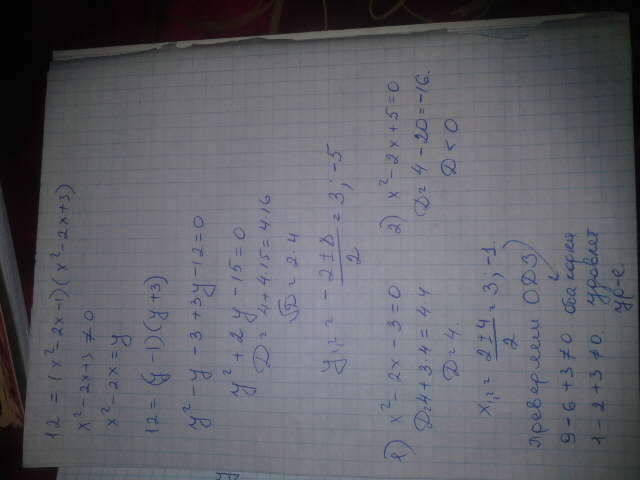 12 = (x²-2x-1)(x²-2x+3)
x²-2x+3 ≠ 0
x²-2x = y
12 = (y-1)(y+3)
y²-y-3+3y-12=0
y²+2y-15=0
D= 4+4·15=4·16
√D = 2·4
y₁,₂ = -2±8/2 = 3; -5
1) x²-2x-3=0
D=4+3·4=4·4
D=4.
x₁,₂ = 2±4/2 = 3; -1.
2) x²-2x+5=0
D= 4-20=-16.
D<0
проверяем ОДЗ
9-6+3≠0 оба корня
1-2+3≠0. удовлет
ур-е.